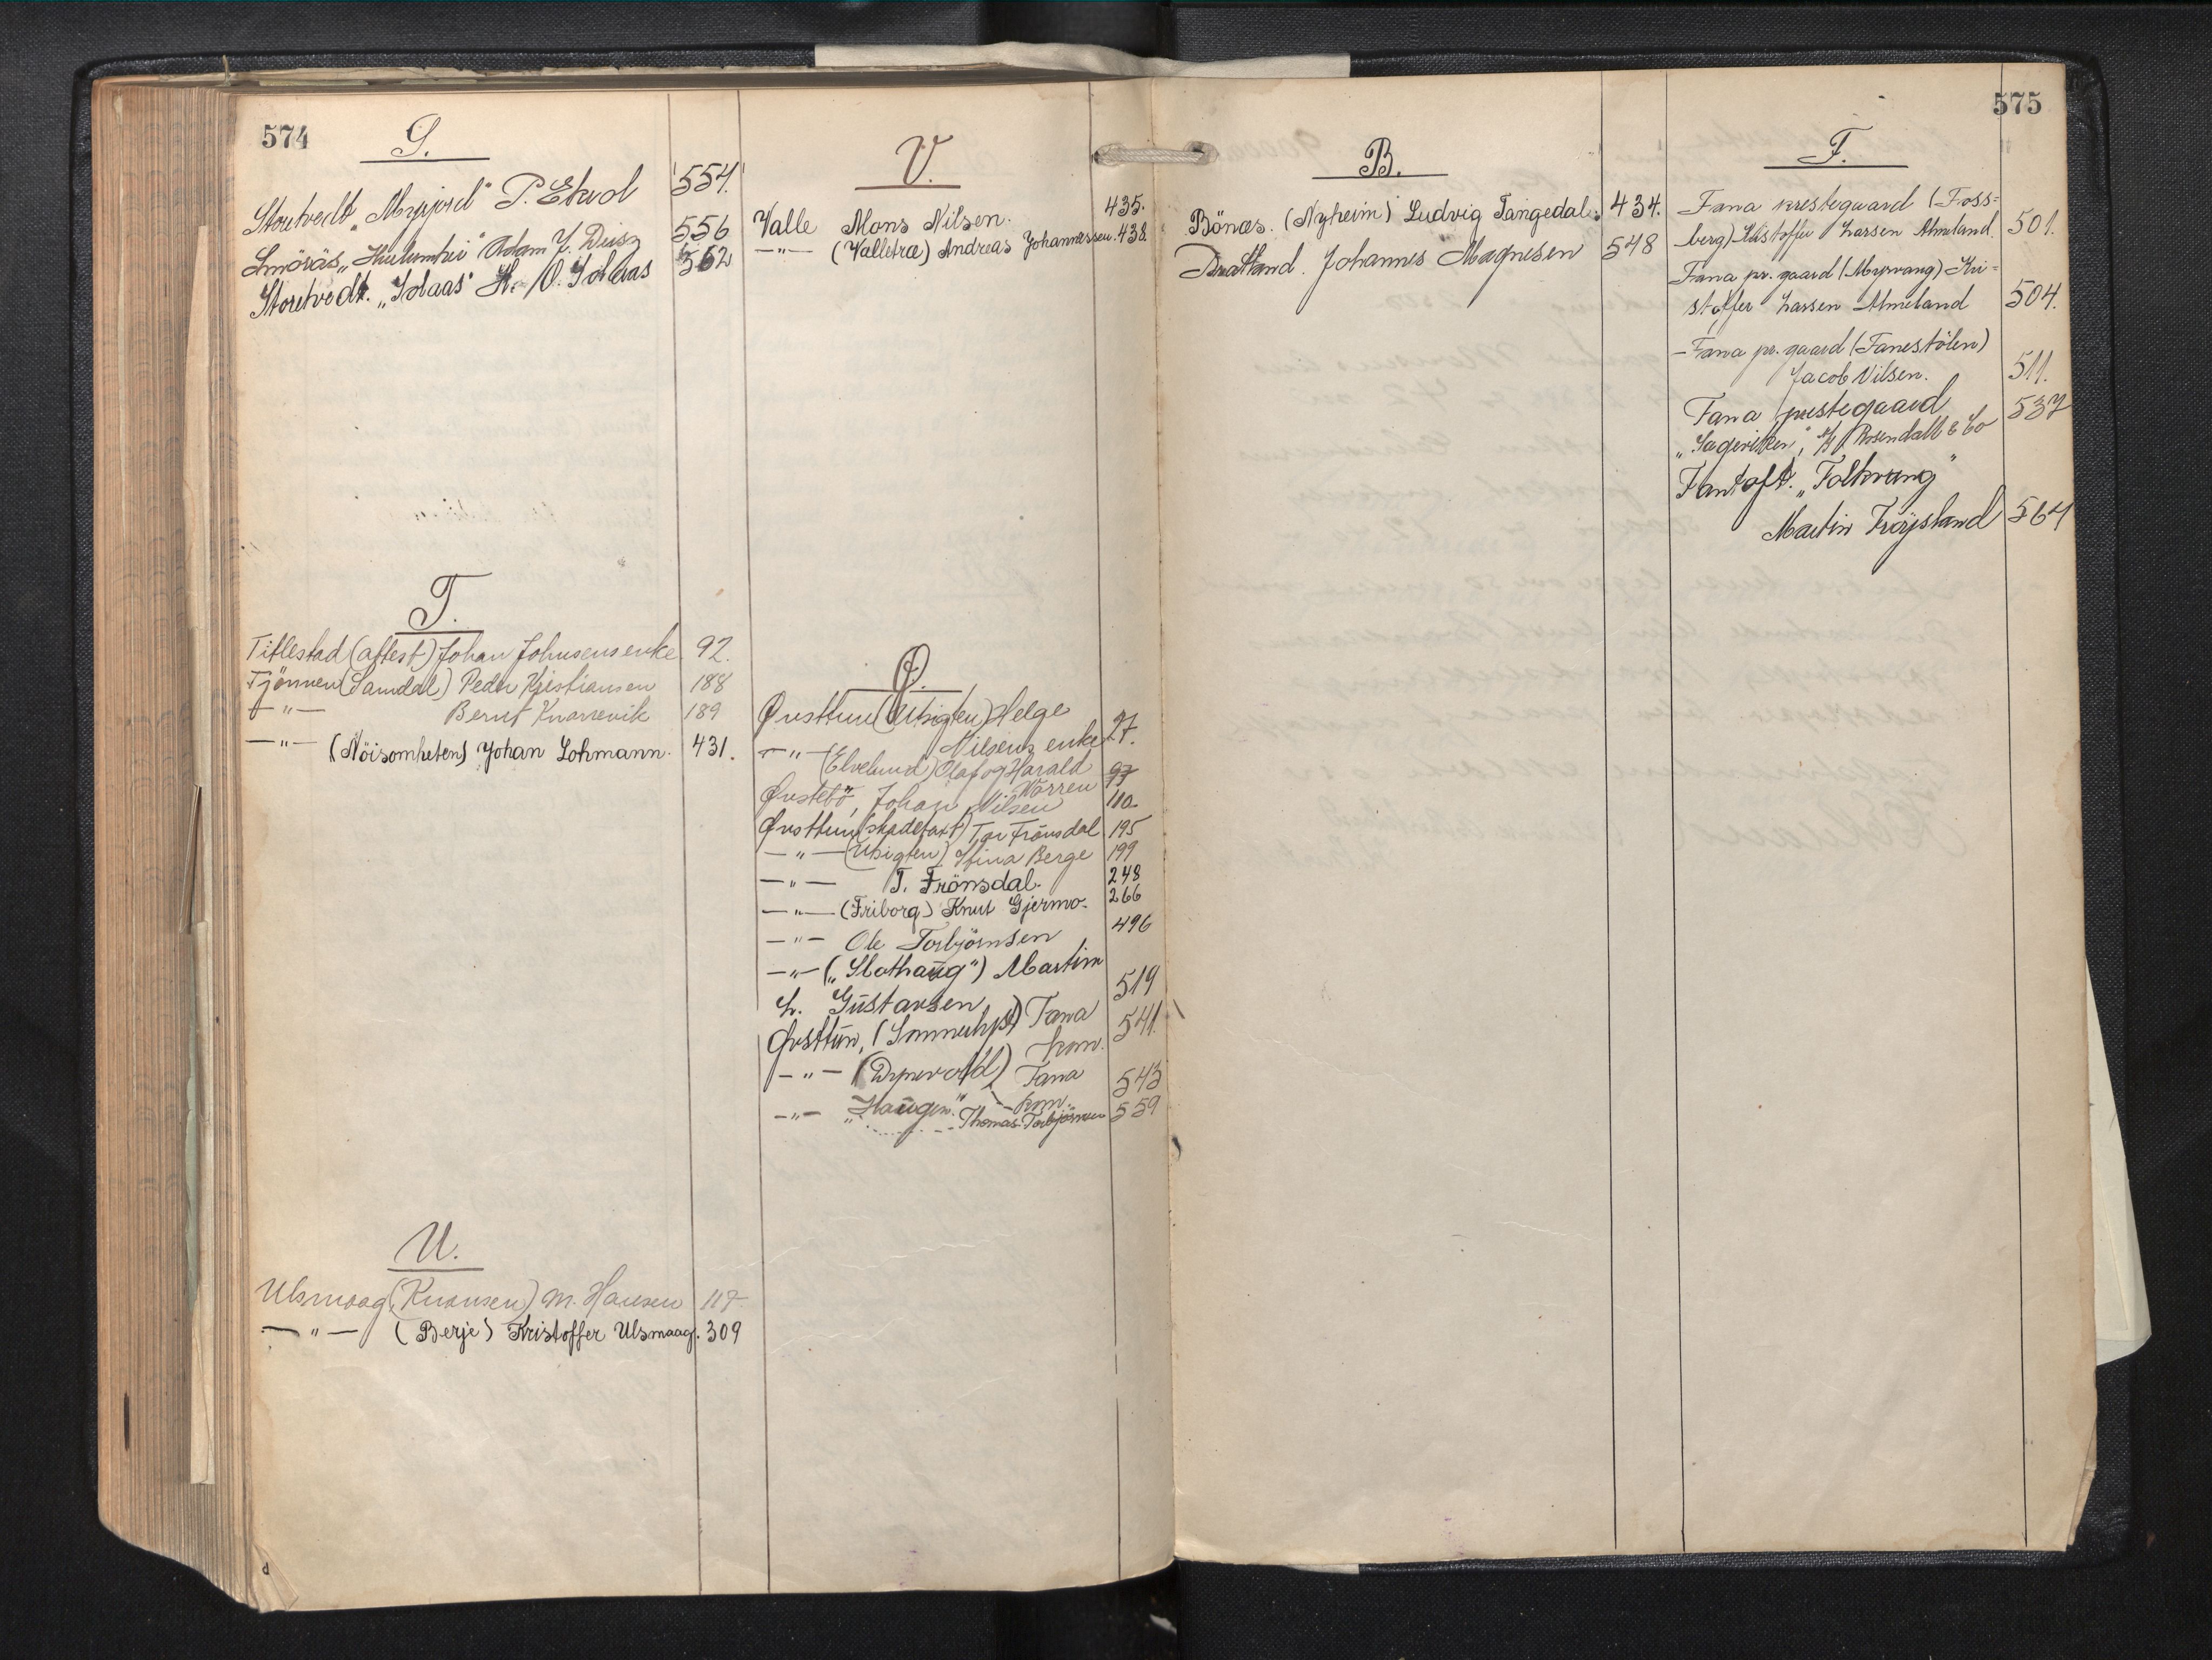 574
S.
Storetvedt „Myrjord" P. Ekrol 554.
Smörås „ " Adam H. 556
Storetvedt. „Solaas" H. O. Solaas 562
T.
Titlestad (aftest) Johan Johnsens enke 92.
Tjönnen (Samdal) Peder Kristiansen 188
—"— Bernt Knarrevik 189
—"— (Nöisomheten) Johan Lohmann. 431.
U.
Ulsmaag (Knausen) M. Hansen 117
—"— (Berje) Kristoffer Ulsmaag. 309
V.
Valle Mons Nilsen. 435.
—"— (Valletræ) Andreas Johannessen. 438.
Ø.
Øvsttun (Utsigten) Helge
Nilsens enke 27.
—"— (Elvelund) Olaf og Harald
Warren 97
Øvstebö, Johan Nilsen 110
Øvsttun (skadetaxt) T. Frönsdal 195
—"— (Utsigten) Stina Berge 199
—"— T. Frönsdal. 248
—"— (Friborg) Knut Gjermo. 266
—"— Ole Torbjörnsen 496
—"— („Slothaug") Martin
L. Gustavsen 519
Øvsttun, (Sommerlyst) Fana
kom. 541.
—"— (Dyrevold) Fana
kom. 543
—"— „Haugen." Thomas Torbjörnsen 559
575
B.
Bönæs. (Nyheim) Ludvig Tangedal. 434.
Bratland. Johannes Magnesen 548
F.
Fana prestegaard (Foss=
berg) Kristoffer Larsen Almeland. 501.
Fana pr. gaard (Myrvang) Kri=
stoffer Larsen Almeland 504.
— Fana pr. gaard (Fanestölen)
Jacob Nilsen. 511.
Fana prestegaard 537
Rosendall & Co
Fantoft. „Folkvang"
Martin Fröysland 564